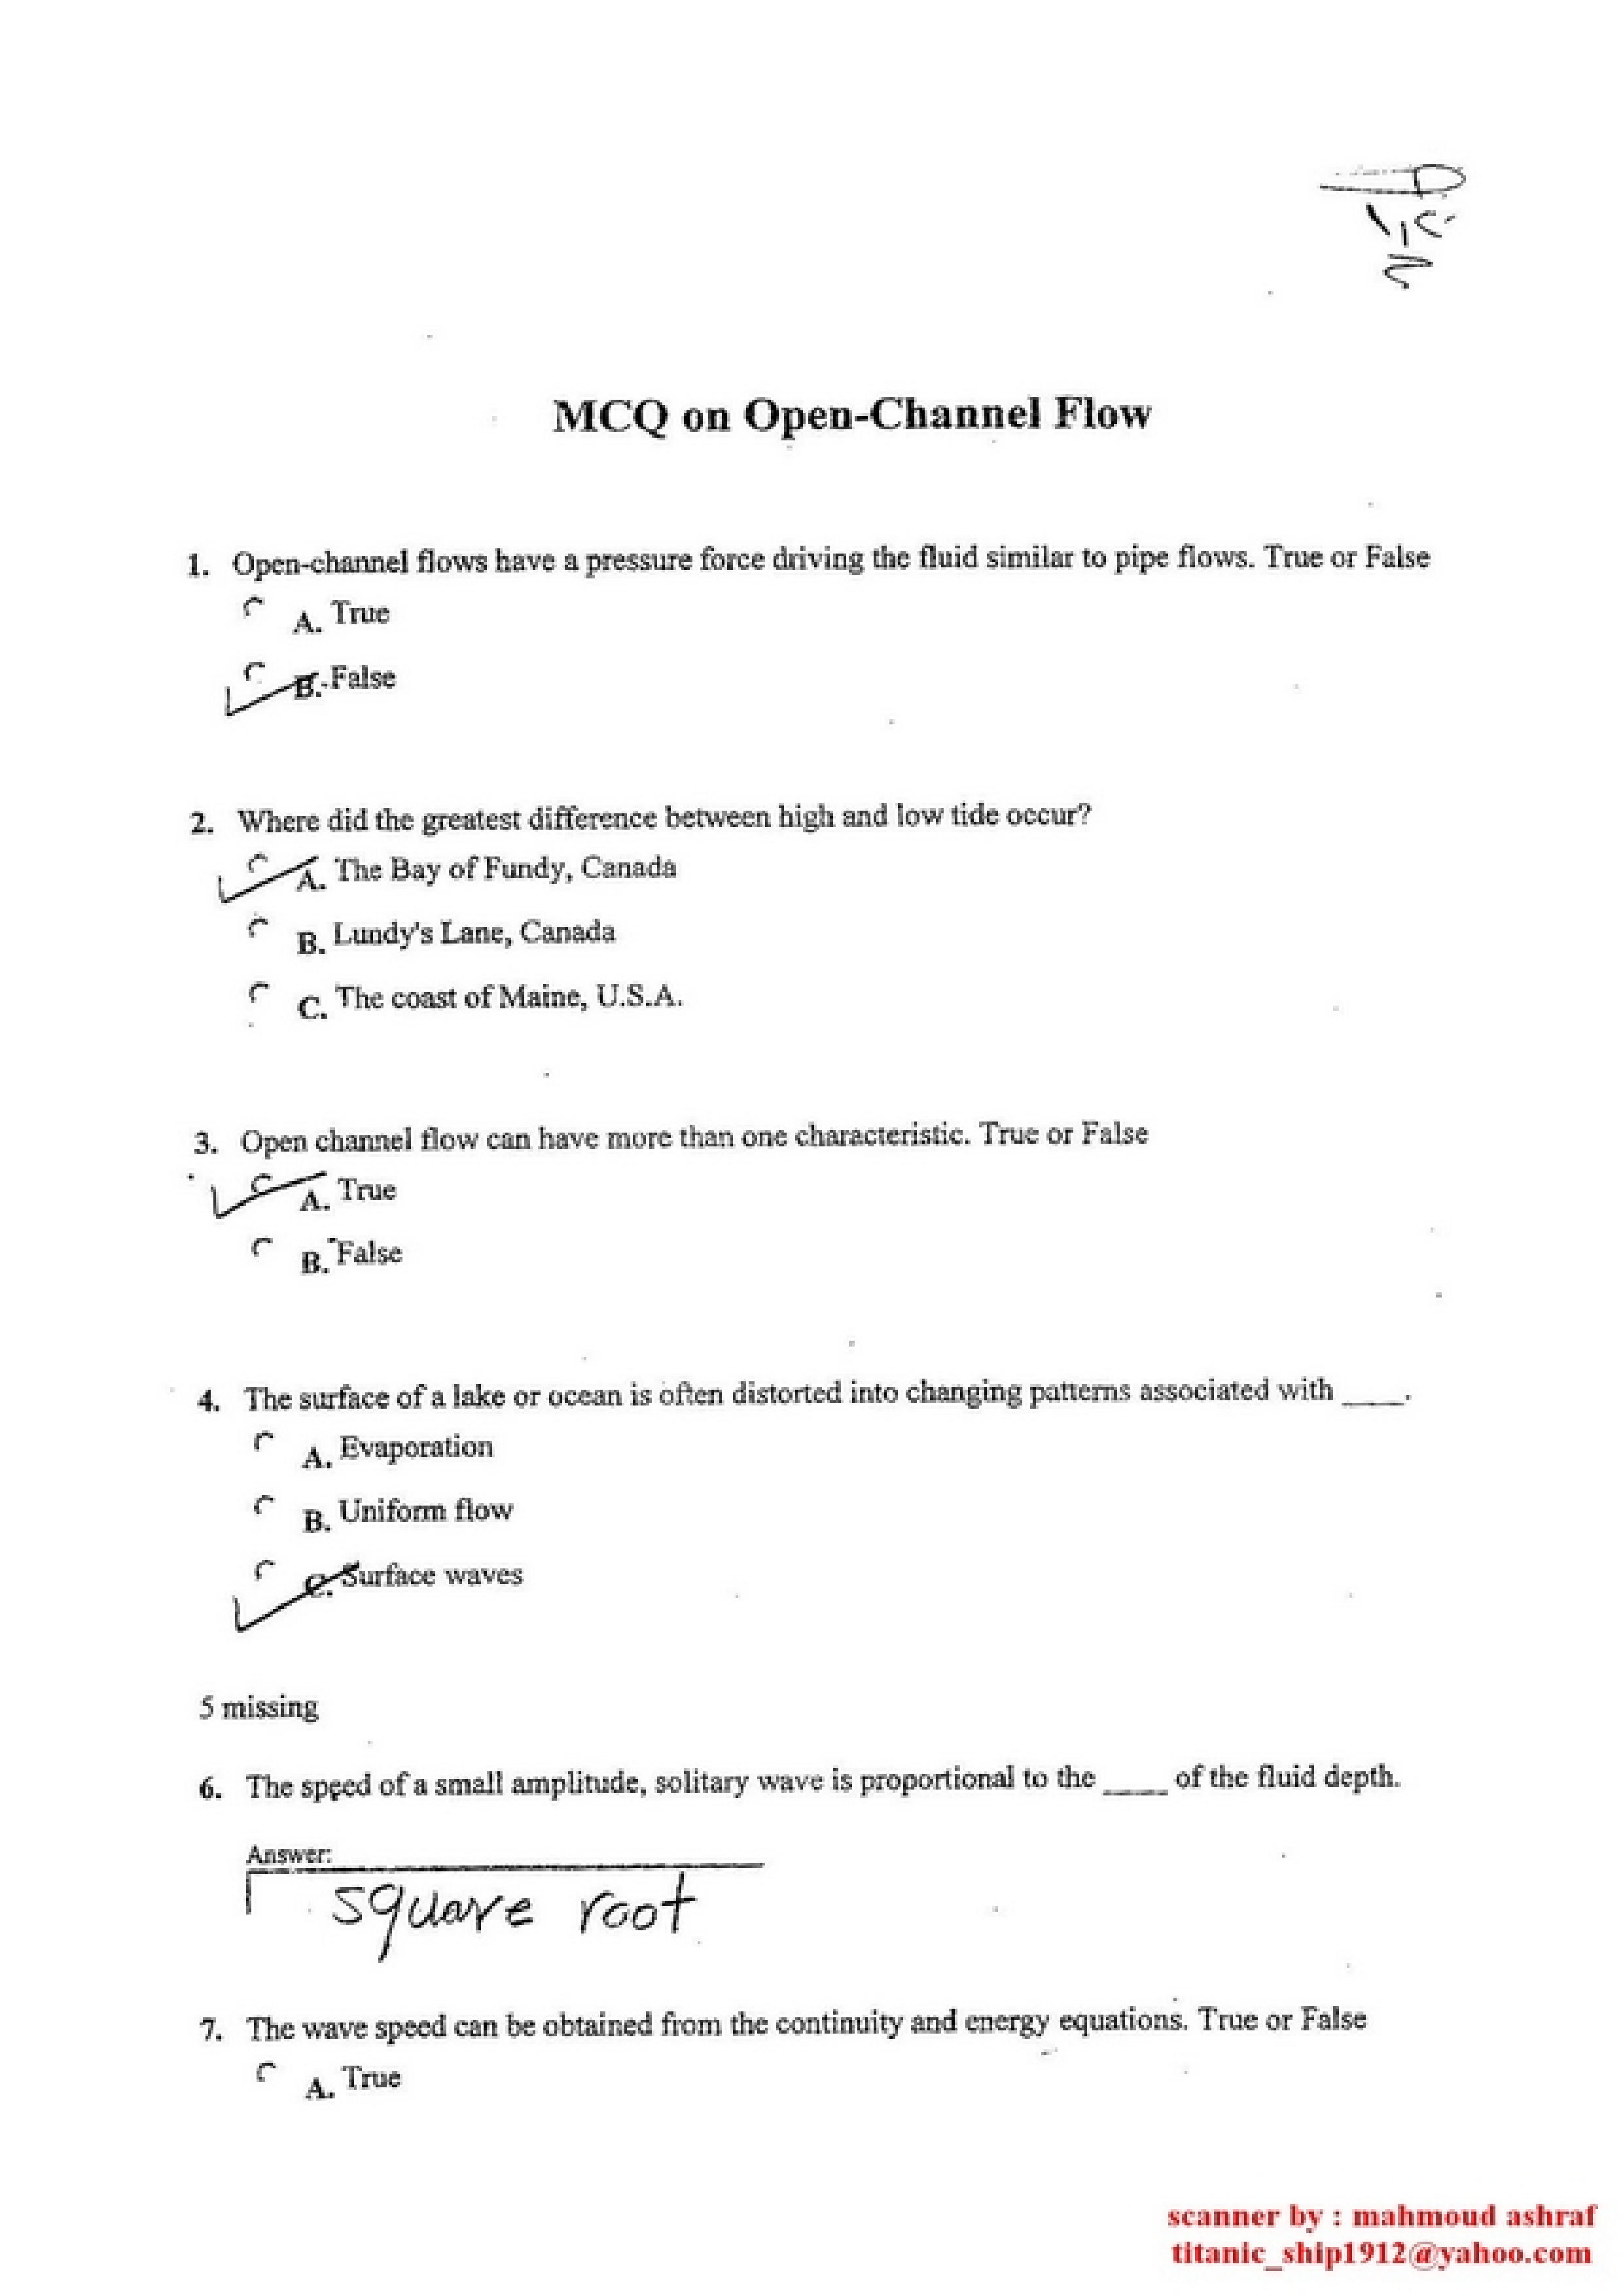 MCQ on Open-Channel Flow
1. Open-channel flows have a pressure force driving the fluid similar to pipe flows. True or False
A. True
B. False
2. Where did the greatest difference between high and low tide occur?
A. The Bay of Fundy, Canada
B. Lundy's Lane, Canada
C. The coast of Maine, U.S.A.
3. Open channel flow can have more than one characteristic. True or False
A. True
B. False
4. The surface of a lake or ocean is often distorted into changing patterns associated with ____.
A. Evaporation
B. Uniform flow
C. Surface waves
5 missing
6. The speed of a small amplitude, solitary wave is proportional to the ____ of the fluid depth.
Answer:
square root
7. The wave speed can be obtained from the continuity and energy equations. True or False
A. True
scanner by : mahmoud ashraf
titanic_ship1912@yahoo.com